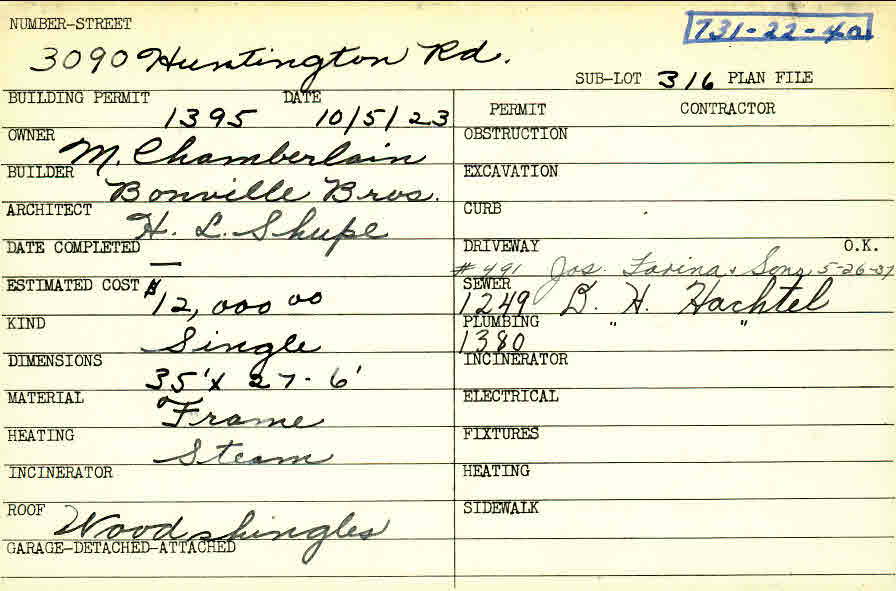 NUMBER-STREET
731-22-40
3090 Huntington Rd.
SUB-LOT 316 PLAN FILE
BUILDING PERMIT DATE
1395 10/5/23
OWNER
M. Chamberlain
BUILDER
Bonville Bros.
ARCHITECT
H. L. Shupe
DATE COMPLETED
—
ESTIMATED COST $12,000 00
KIND
Single
DIMENSIONS
35' x 27-6'
MATERIAL
Frame
HEATING
Steam
INCINERATOR
ROOF
Wood shingles
GARAGE-DETACHED-ATTACHED
PERMIT CONTRACTOR
OBSTRUCTION
EXCAVATION
CURB
DRIVEWAY O.K.
# 491 Jos. Farina & Sons 5-26-37
SEWER
1249 D. H. Hachtel
PLUMBING " "
1380
INCINERATOR
ELECTRICAL
FIXTURES
HEATING
SIDEWALK